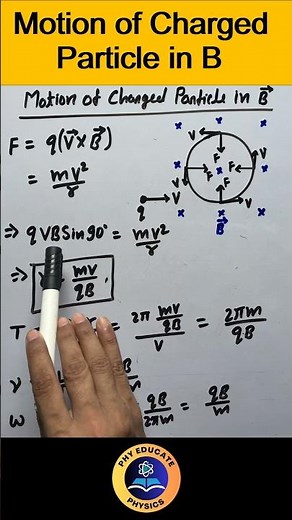 Motion of Charged
Particle in B
Motion of Charged Particle in B⃗
F = q(V⃗ x B⃗)
= mv²/r
q
V
V
V
V
V
F
F
F
F
B⃗
⇒ qVBSin90° = mv²/r
⇒ mv/qB
T = 2π mv/qB / V = 2πm/qB
ν
ω qB/2πm = qB/m
PHY EDUCATE
PHYSICS